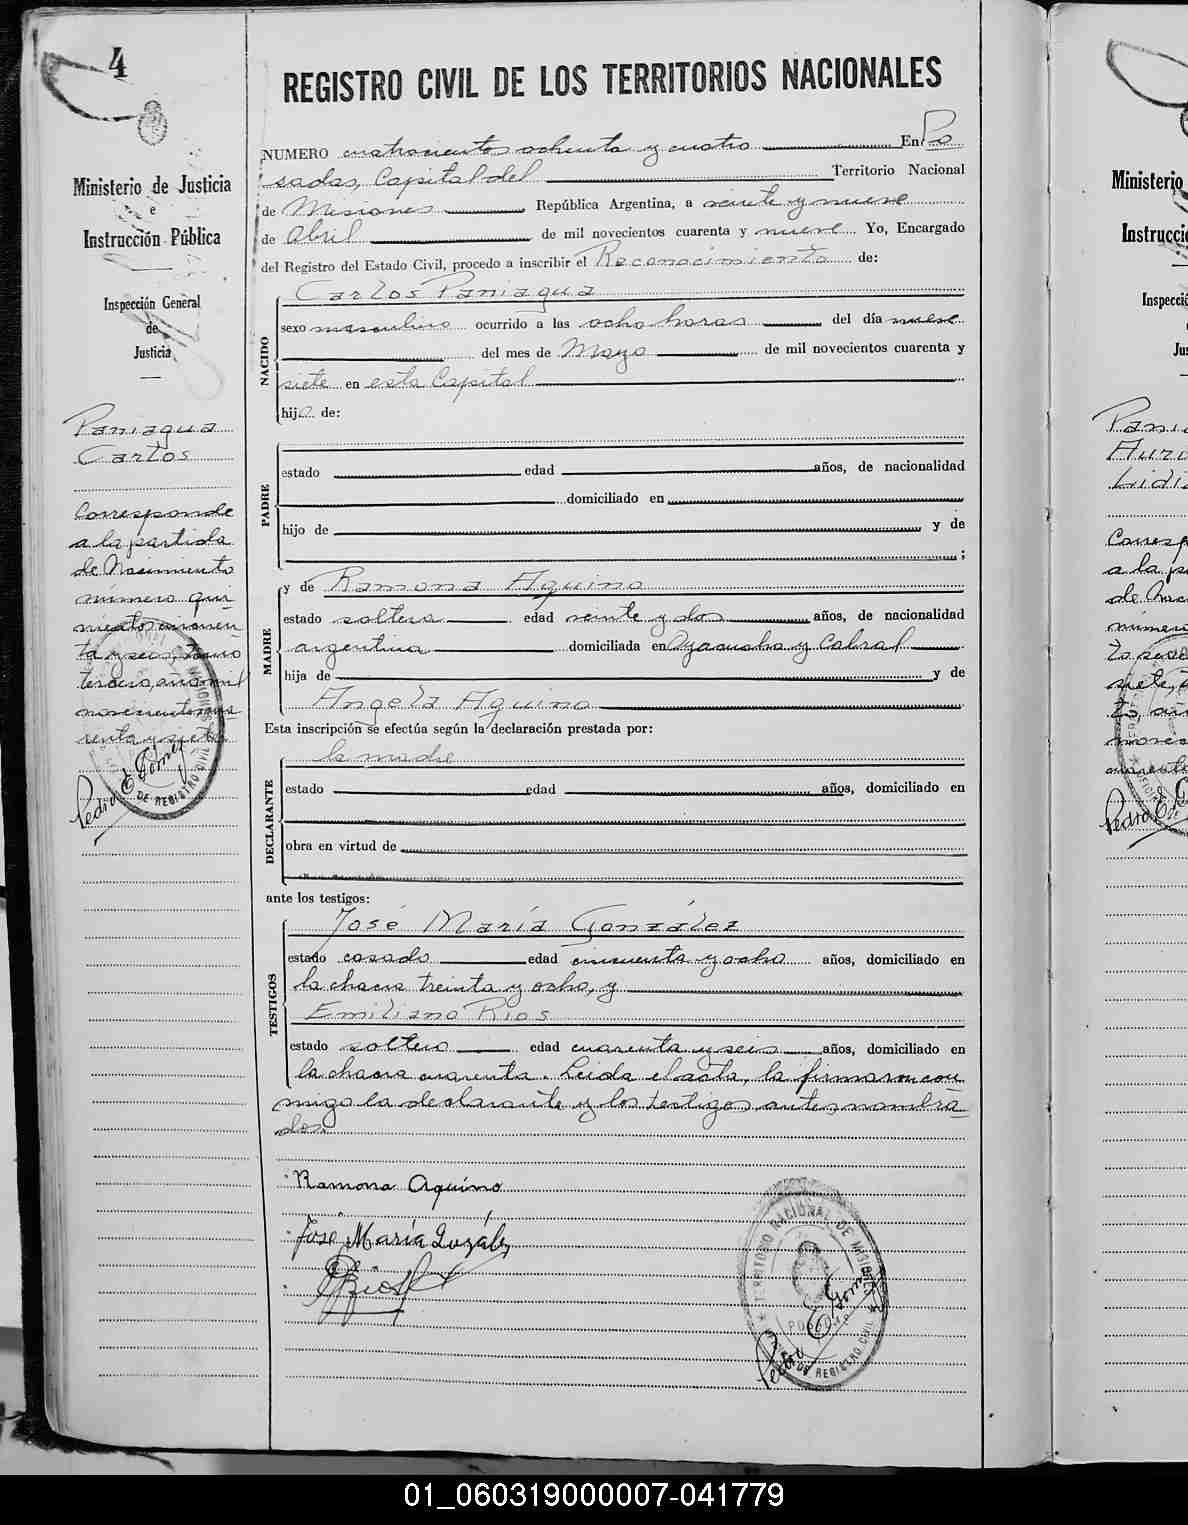 4
REGISTRO CIVIL DE LOS TERRITORIOS NACIONALES
Ministerio de Justicia
e
Instrucción Pública
Inspección General
de
Justicia
Paniagua
Carlos
Corresponde
a la partida
de Nacimiento
número qui-
nientos noven-
ta y seis, tomo
tercero, año mil
novecientos cua-
renta y siete
Pedro E Gómez
NUMERO cuatrocientos ochenta y cuatro En Po
sadas, Capital del Territorio Nacional
de Misiones República Argentina, a veinte y nueve
de Abril de mil novecientos cuarenta y nueve Yo, Encargado
del Registro del Estado Civil, procedo a inscribir el Reconocimiento de:
NACIDO
Carlos Paniagua
sexo masculino ocurrido a las ocho horas del día nueve
del mes de Mayo de mil novecientos cuarenta y
siete en esta Capital
hijo de:
PADRE
estado edad años, de nacionalidad
domiciliado en
hijo de y de
;
MADRE
y de Ramona Aquino
estado soltera edad veinte y dos años, de nacionalidad
argentina domiciliada en Ayacucho y Cabral
hija de y de
Angela Aquino
Esta inscripción se efectúa según la declaración prestada por:
DECLARANTE
la madre
estado edad años, domiciliado en
obra en virtud de
ante los testigos:
TESTIGOS
José María González
estado casado edad cincuenta y ocho años, domiciliado en
la chacra treinta y ocho, y
Emiliano Rios
estado soltero edad cuarenta y seis años, domiciliado en
la chacra cuarenta. Leida el acta, la firmaron con
migo la declarante y los testigos antes nombra
dos.
Ramona Aquino
José María Gozález
ERios
TERRITORIO NACIONAL DE MISIONES
DE REGISTRO CIVIL
Pedro E Gomez
Ministerio
Instrucci
Inspecci
Ju
Pani
Auro
Lidi
Corresp
a la p
de Nac
número
Pedro E. G
01_060319000007-041779